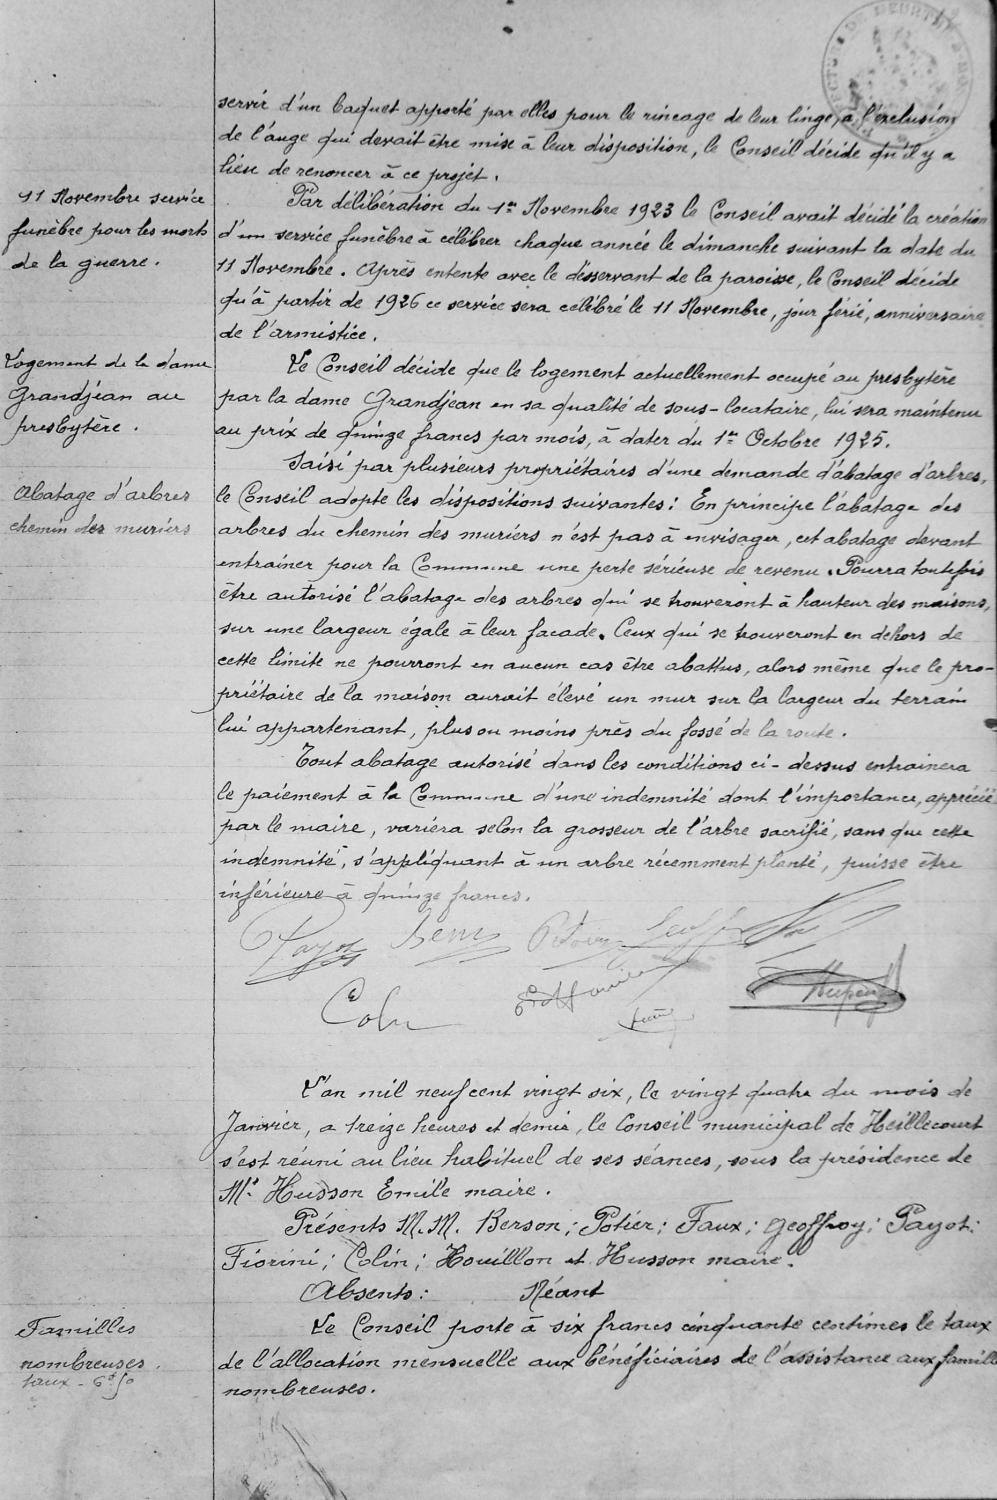 servir d'un baquet apporté par elles pour le rincage de leur linge, à l'exclusion
de l'auge qui devait être mise à leur disposition, le Conseil décide qu'il y a
lieu de renoncer à ce projet.
11 Novembre service
funèbre pour les morts
de la guerre.
Par délibération du 1er Novembre 1923 le Conseil avait décidé la création
d'un service funèbre à célébrer chaque année le dimanche suivant la date du
11 Novembre. Après entente avec le desservant de la paroisse, le Conseil décide
qu'à partir de 1926 ce service sera célébré le 11 Novembre, jour férié, anniversaire
de l'armistice.
Logement de la dame
Grandjéan au
presbytère.
Le Conseil décide que le logement actuellement occupé au presbytère
par la dame Grandjéan en sa qualité de sous-locataire, lui sera maintenu
au prix de quinze francs par mois, à dater du 1er Octobre 1925.
Abatage d'arbres
chemin des muriers
Saisi par plusieurs propriétaires d'une demande d'abatage d'arbres,
le Conseil adopte les dispositions suivantes: En principe l'abatage des
arbres du chemin des muriers n'est pas à envisager, cet abatage devant
entrainer pour la Commune une perte sérieuse de revenu. Pourra toutefois
être autorisé l'abatage des arbres qui se trouveront à hauteur des maisons,
sur une largeur égale à leur facade. Ceux qui se trouveront en dehors de
cette limite ne pourront en aucun cas être abattus, alors même que le pro-
priétaire de la maison aurait élevé un mur sur la largeur du terrain
lui appartenant, plus ou moins près du fossé de la route.
Tout abatage autorisé dans les conditions ci-dessus entrainera
le paiement à la Commune d'une indemnité dont l'importance, appréciée
par le maire, variera selon la grosseur de l'arbre sacrifié, sans que cette
indemnité, s'appliquant à un arbre récemment planté, puisse être
inférieure à quinze francs.
Payot
Colin
L'an mil neuf cent vingt six, le vingt quatre du mois de
Janvier, a treize heures et demie, le Conseil municipal de Heillecourt
s'est réuni au lieu habituel de ses séances, sous la présidence de
Mr Husson Emile maire.
Présents M.M. Berson; Potier; Faux; Geoffroy; Payot;
Fiorini; Colin; Houillon et Husson maire.
Absents: Néant
Familles
nombreuses.
taux - 6f50
Le Conseil porte à six francs cinquante centimes le taux
de l'allocation mensuelle aux bénéficiaires de l'assistance aux familles
nombreuses.